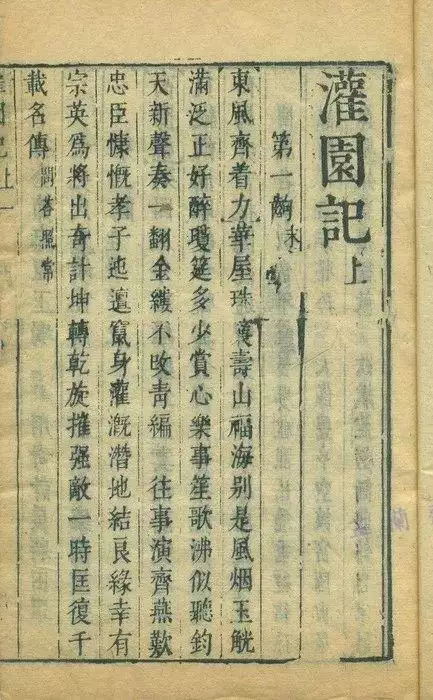 灌園記上
第一齣末
東風齊着力華屋珠簾壽山福海别是風烟玉觥
滿泛正好醉瓊筵多少賞心樂事笙歌沸似聽鈞
天新聲奏一翻金縷不改青編 往事演齊燕歎
忠臣慷慨孝子迍邅竄身灌溉潛地結良緣幸有
宗英爲將出竒計坤轉乾旋摧强敵一時匡復千
載名傳問荅照常
灌園記上 一